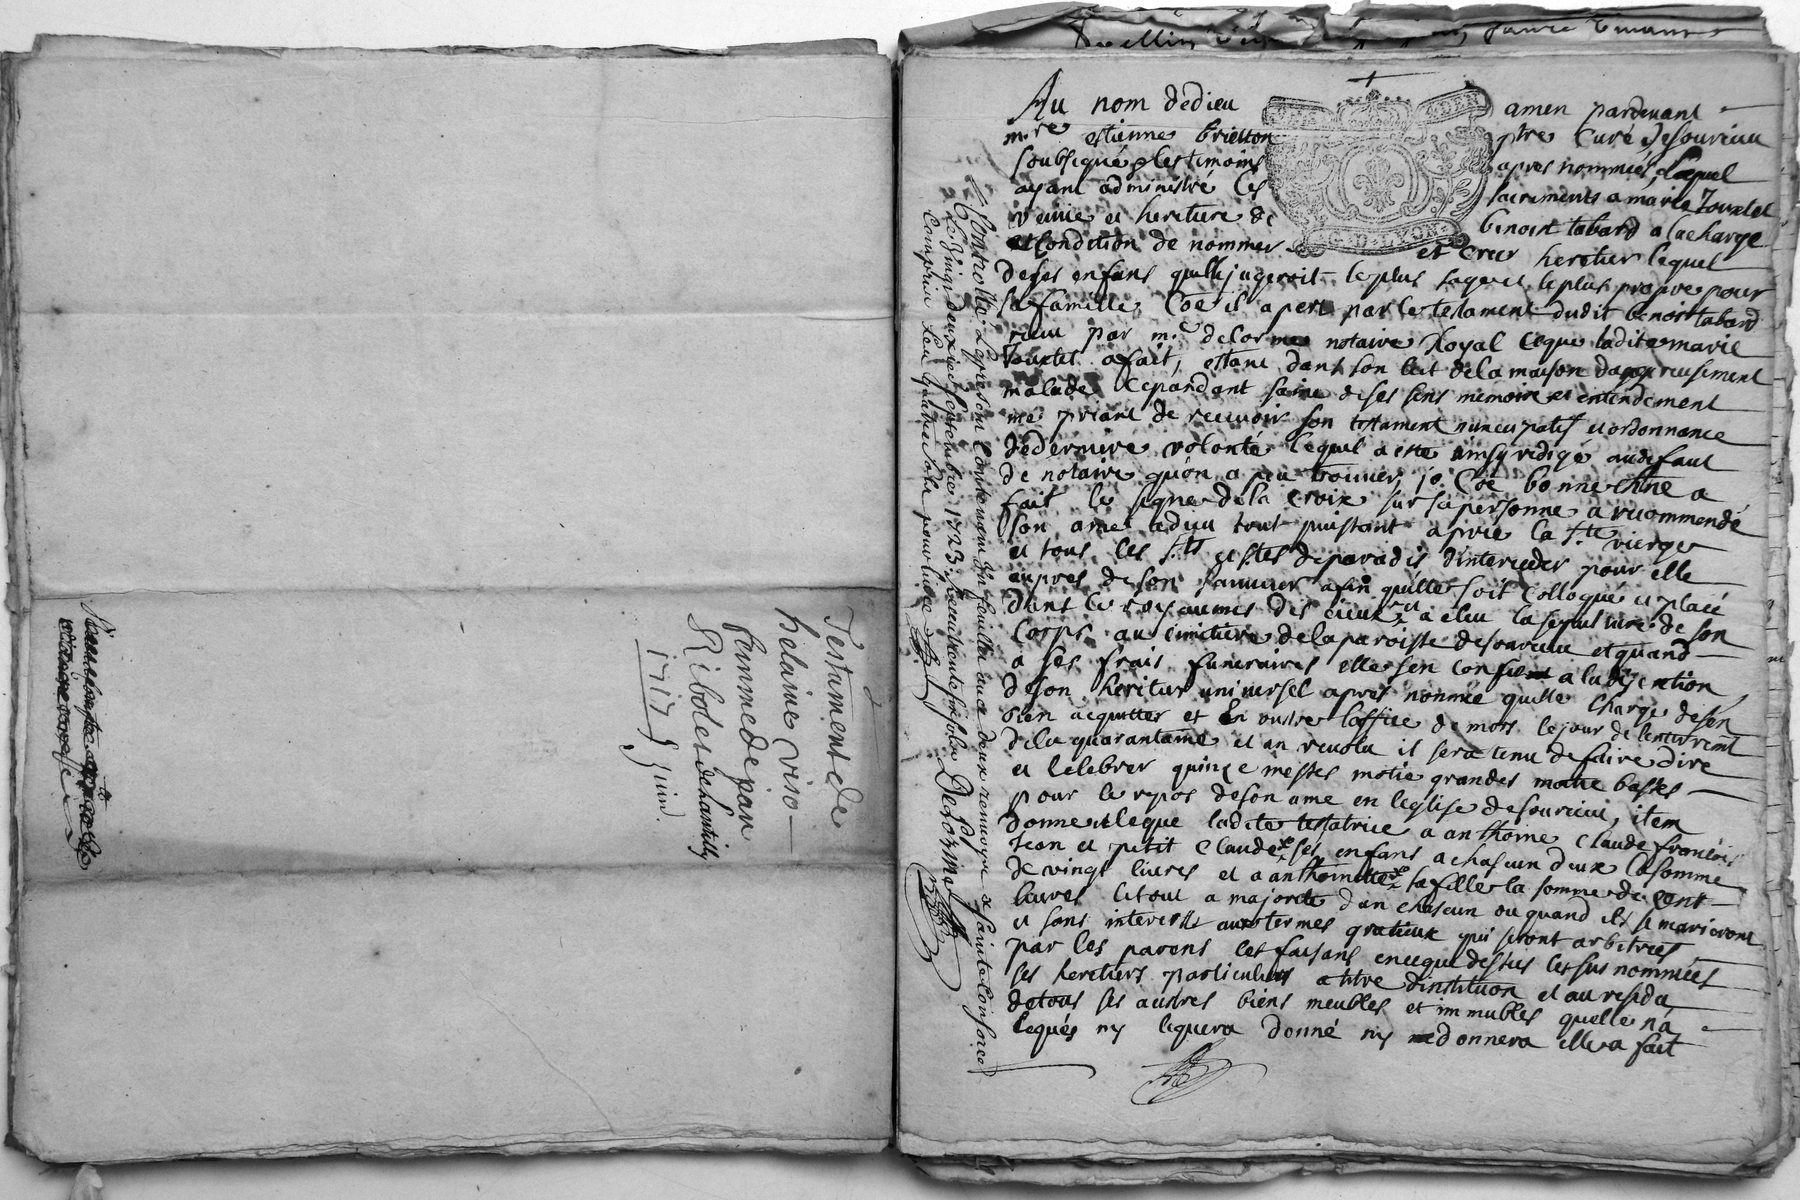 Testament de
helaine viso
femme de jean
Ribolet de hantilly
1717 juin
Au nom de dieu amen pardevant
mre estienne brietton ptre Curé de sourieu
soubsigné & les temoins apres nommés, lequel
ayant administré les sacrements a marie touxtet
veuve et heritiere de benoist tabard a la charge
et Condition de nommer et creer heretier lequel
de ses enfans quelle jugeroit le plus sage et le plus propre pour
sa famille, Coe il apert par le testament dudit benoist tabard
receu par me delorme notaire Royal Ceque ladite marie
touxtet a fait, estant dans son lict de la maison dangereusement
malade Cepandant saine de ses sens memoire et entendement
me priant de recevoir son testament nuncupatif et ordonnance
de derniere volonté lequel a esté ainsy redigé au defaut
de notaire quon a peu trouver, jo Coe bonne chne a
fait le signe de la croix sur sa personne a recommendé
son ame a dieu tout puissant a prie la ste vierge
et tous les sts et stes de paradis dinterceder pour elle
aupres de son sauveur afin quelle soit Colloquée et placé
dans le royaumes des cieux, a eleu la sepulture de son
Corps au cimitiere de la paroisse de sourieu et quand
a ses frais funeraires elle sen confie a la discretion
de son heritier universel apres nommé quelle charge de sen
bien acquitter et En oustre loffice de mors le jour de lenterremt
de la quarantaine et an revolu il sera tenu de faire dire
et celebrer quinze messes motie grandes motie basses
pour le repos de son ame en leglise de sourieu, item
donne et legue ladite testatrice a anthoine, Claude francois
Jean et petit Claude ses enfans a chascun deux la somme
de vingt livres et a anthoinette sa fille la somme de Cent
livres le tout a majorite dun chascun ou quand ils se marieront
et sans interest aux termes gratieux qui seront arbitrés
par les parens les faisans en ce que dessus les sus nommées
ses heretiers particuliers a titre dinstitution et au residu
de tous ses austres biens meubles et immubles quelle na
legués ny leguera donné ny donnera elle a fait
Controllé Lepresent Contenant Un feuillet avec deux renvoys a sainte Consorce
le Vingt deuxieme septembre 1723.
Compris les quatre sols pour livre
Delorme